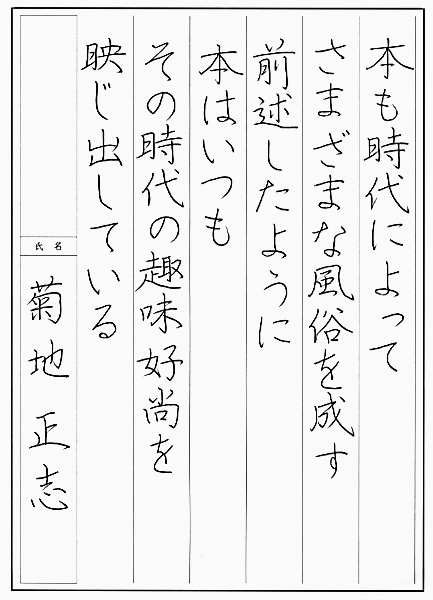 本も時代によって
さまざまな風俗を成す
前述したように
本はいつも
その時代の趣味好尚を
映じ出している
氏名
菊地 正志